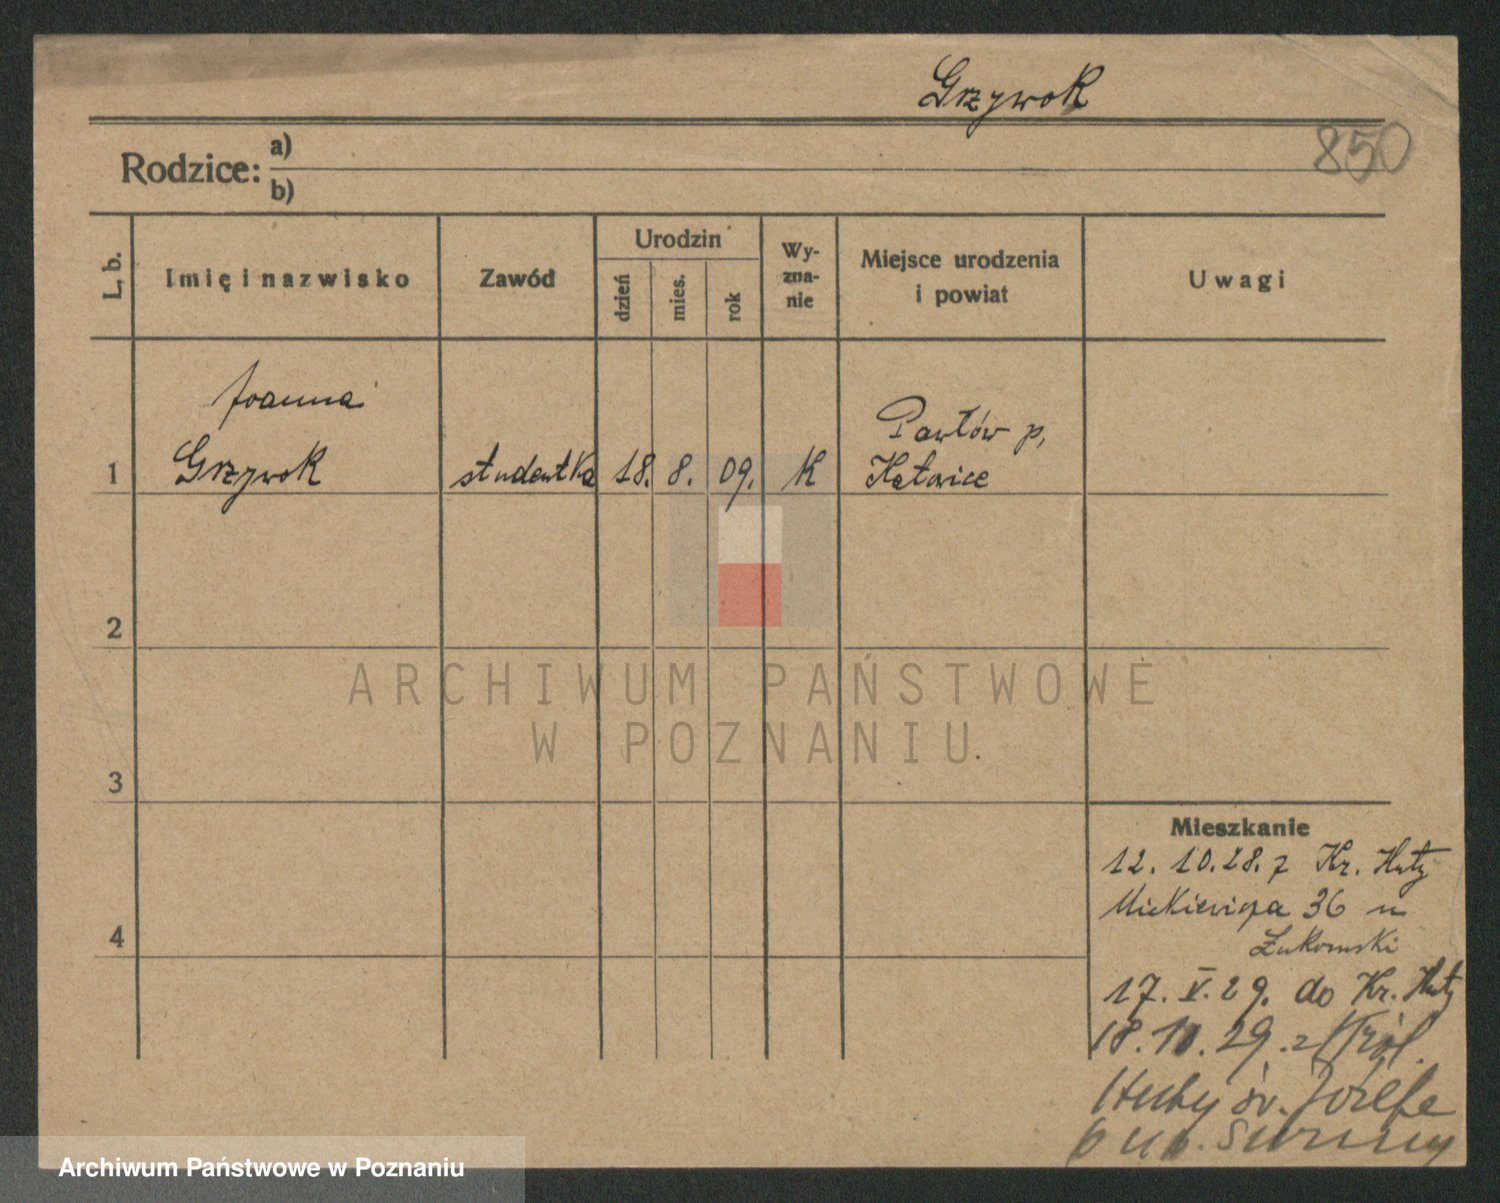 Grzywok
850
Rodzice: a)
b)
L. b.
Imię i nazwisko
Zawód
Urodzin
dzień
mies.
rok
Wy-
zna-
nie
Miejsce urodzenia
i powiat
Uwagi
Joanna
Grzywok
1
studentka
18.
8.
09.
K
Pawłów p,
Katowice
2
3
4
ARCHIWUM PAŃSTWOWE
W POZNANIU
Mieszkanie
12. 10.28. z Kr. Huty
Mickiewicza 36 u
Żukowski
17. V. 29. do Kr. Huty
18. 10. 29. z Król.
Huty św. Józefa
6 u
Archiwum Państwowe w Poznaniu